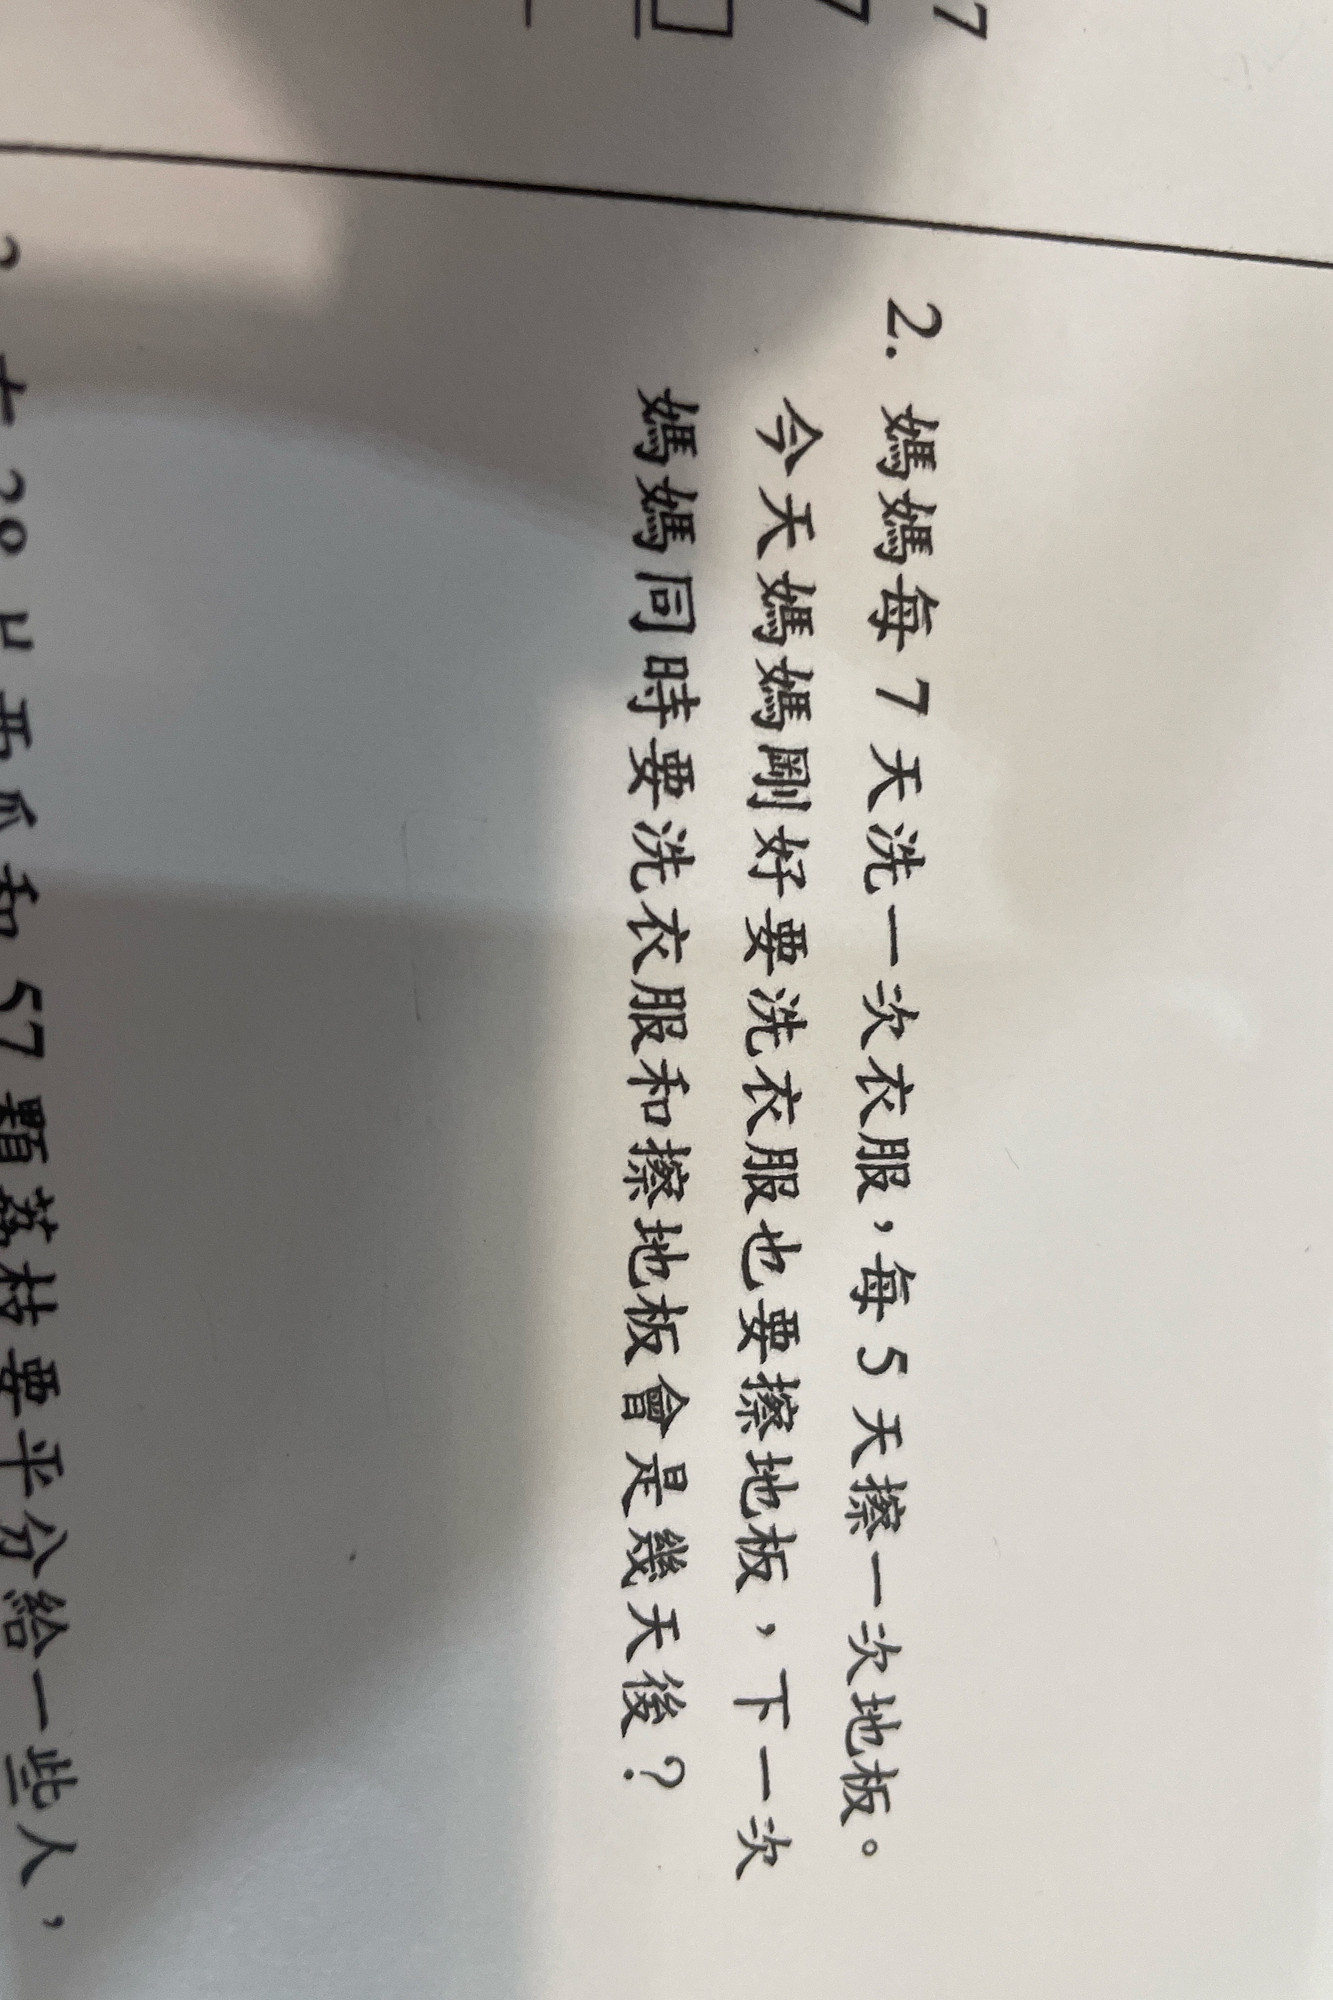 7
7
2. 媽媽每 7 天洗一次衣服，每 5 天擦一次地板。
今天媽媽剛好要洗衣服也要擦地板，下一次
媽媽同時要洗衣服和擦地板會是幾天後？
西瓜和 57 顆荔枝要平分給一些人，